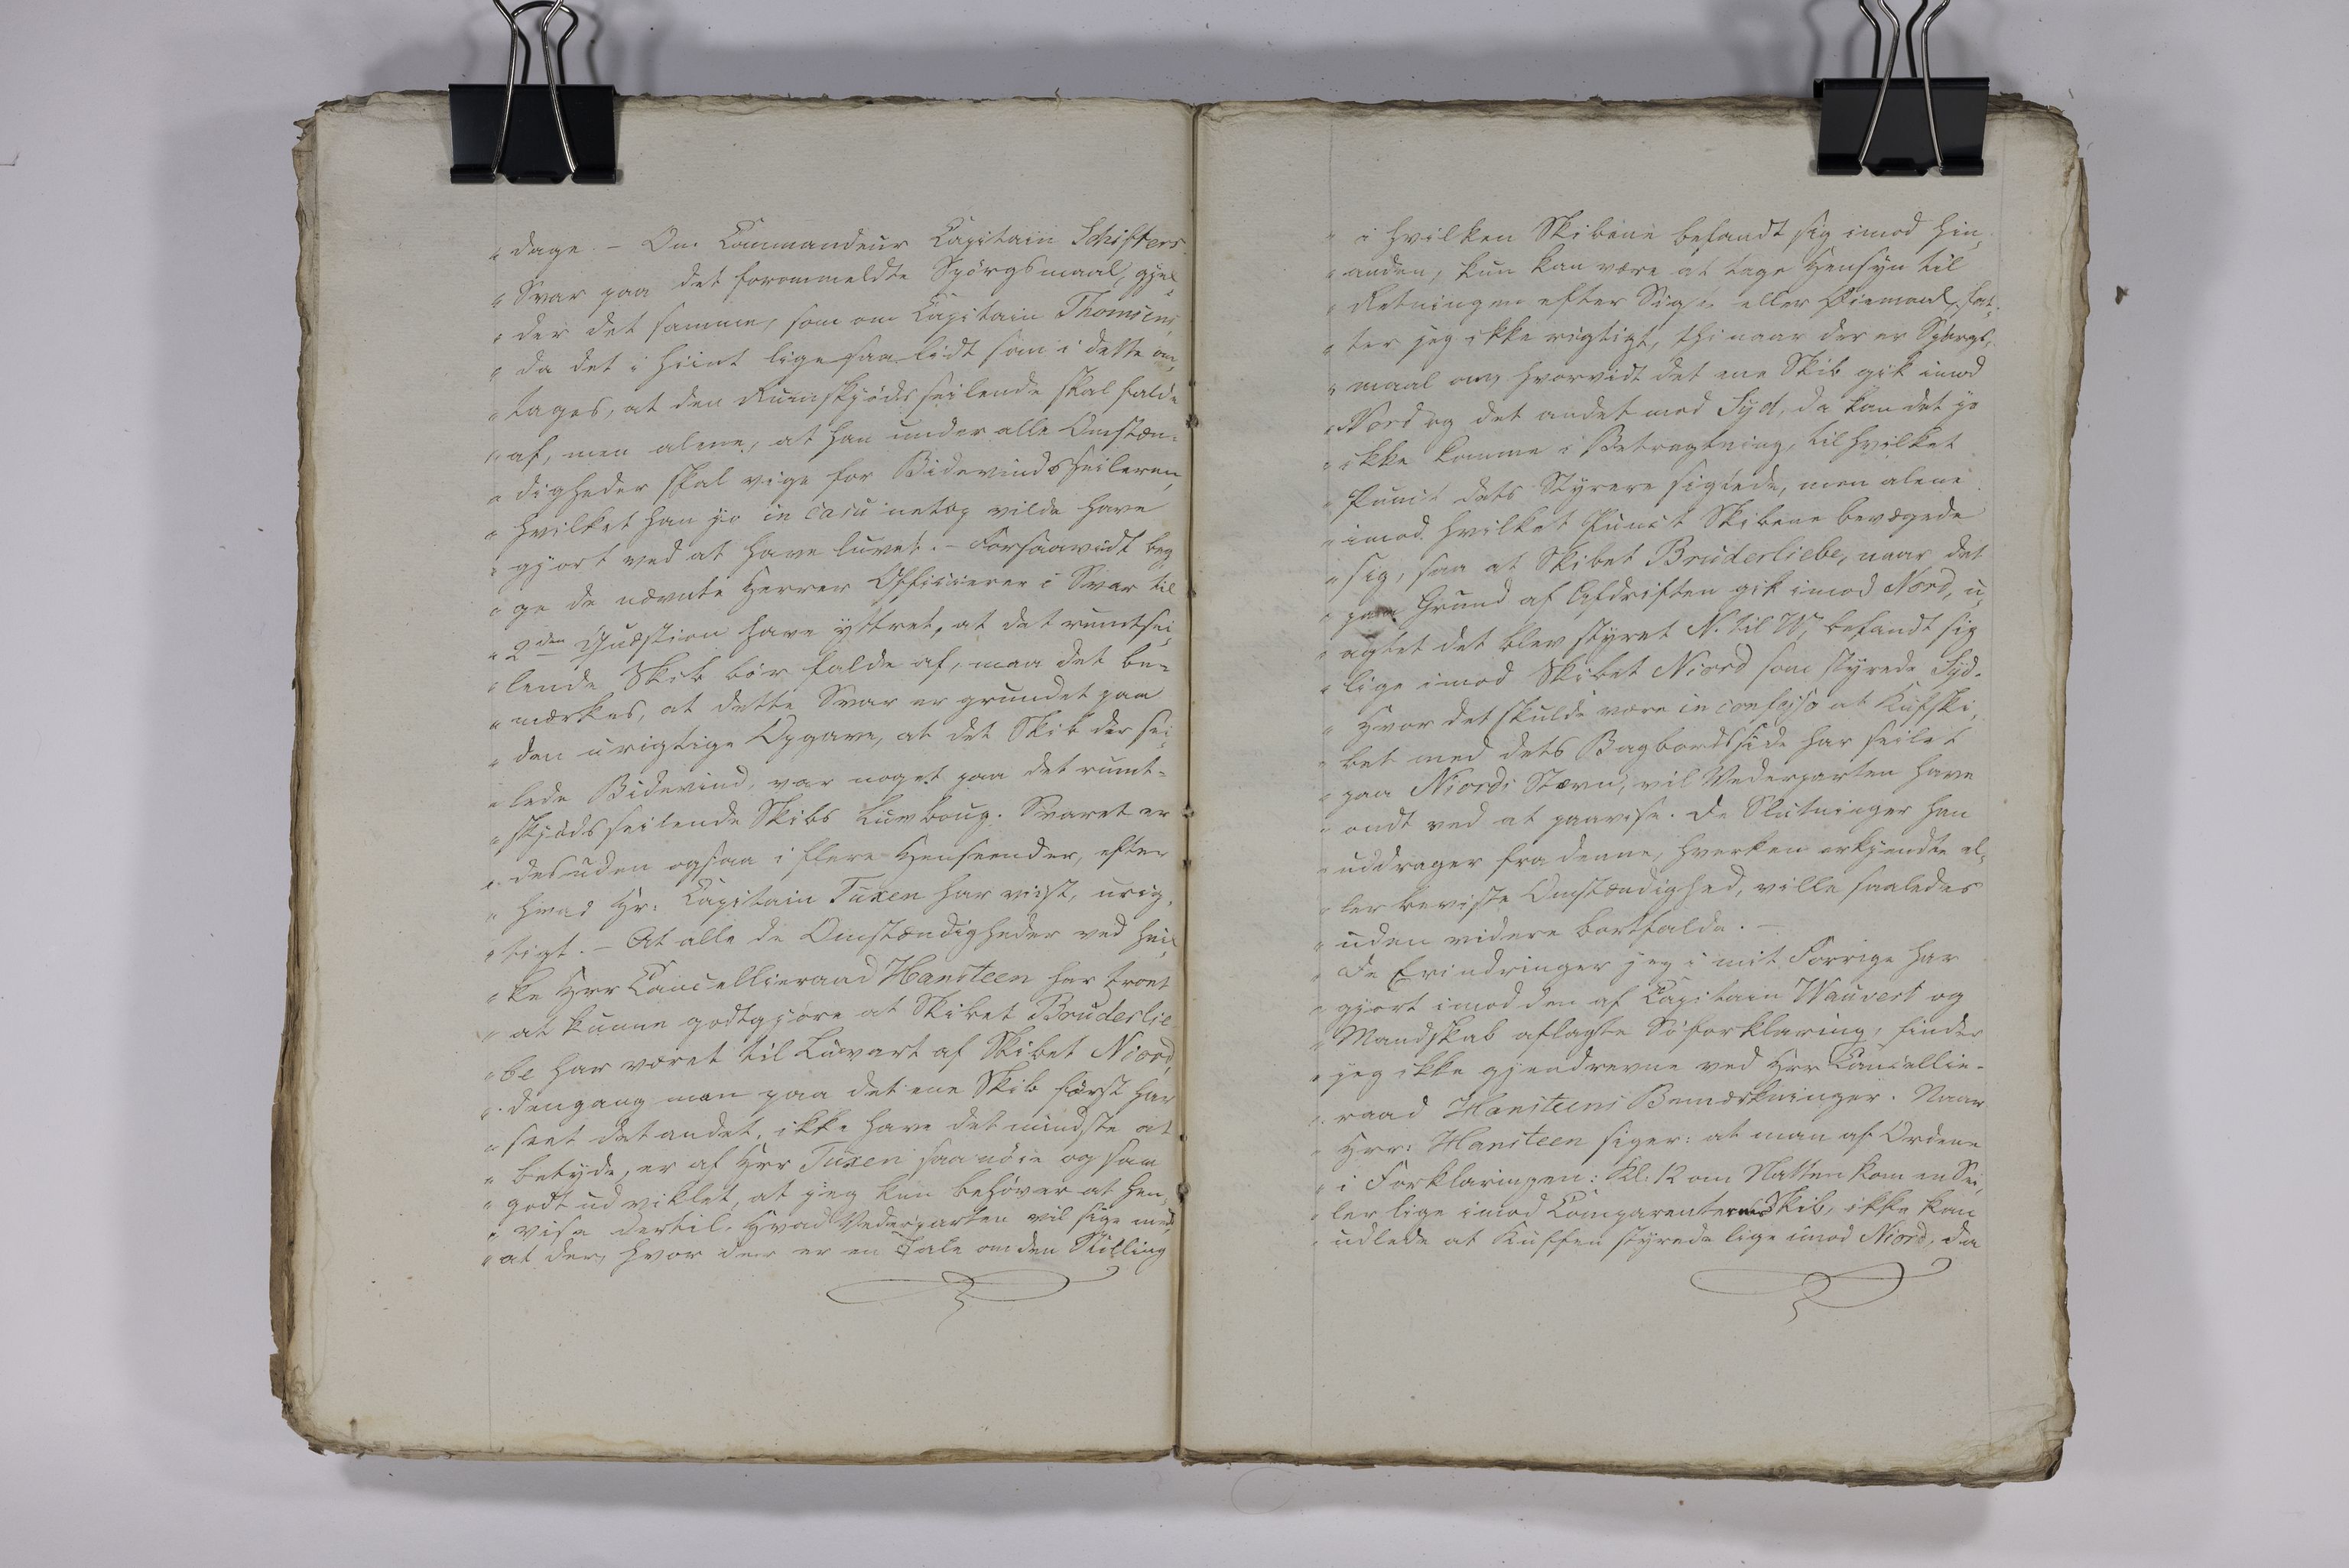 " dage. – Om Commandeur Capitain Schifters
" Svar paa det forommeldte Spörgsmaal, gjel„
" der det samme, som om Capitain Thomsens,
" da det i hiint lige saa lidt som i dette an„
" tages, at den Rumskjöds seilende skal falde
" af, men alene, at han under alle Omstæn„
" digheder skal vige for Bidevindsseileren,
" hvilket han jo in casu netop vilde have
" gjort ved at have luvet. – Forsaavidt beg„
" ge de nævnte Herrer Officierer i Svar til
" 2den Quæstion have yttret, at det rumtsei„
" lende Skib bör falde af, maa det be„
" mærkes, at dette Svar er grundet paa
" den urigtige Opgave, at det Skib der sei„
" lede Bidevind, var noget paa det rumt„
" skjöds seilende Skibs Luvboug. Svaret er
" desuden ogsaa i flere Henseender, efter
" hvad Hr. Capitain Tuxen har viist, urig„
" tigt. – At alle de Omstændigheder ved hvil„
" ke Herr Cancellieraad Hansteen har troet
" at kunne godtgjöre at Skibet Bruderlie„
" be har været til Luvart af Skibet Niord,
" dengang man paa det ene Skib först har
" seet det andet, ikke have det mindste at
" betyde, er af Herr Tuxen saa nöie og saa
" godt udviklet, at jeg kun behöver at hen„
" vise dertil. Hvad Vederparten vil sige med,
" at der, hvor der er en Tale om den Stilling
" i hvilken Skibene befandt sig imod hin„
" anden, kun kan være at tage Hensyn til
" Retningen efter Sigte eller Öiemaal, fat„
" ter jeg ikke rigtigt, thi naar der er Spörgs„
" maal om, hvorvidt det ene Skib gik imod
" Nord og det andet mod Syd, da kan det jo
" ikke komme i Betragtning, til hvilket
" Punct dets Styrere sigtede, men alene
" imod hvilket Punct Skibene bevægede
" sig, saa at Skibet Bruderliebe, naar det
" paa Grund af Afdriften gik imod Nord, u„
" agtet det blev styret N. til W, befandt sig
" lige imod Skibet Niord som styrede Syd.
" Hvor det skulde være in confesso at Kufski„
" bet med dets Bagbordsside har seilet
" paa Niords Stævn, vil Vederparten have
" ondt ved at paavise. De Slutninger han
" uddrager fra denne, hverken erkjendte el„
" ler beviste Omstændighed, ville saaledes
" uden videre bortfalde. –
" De Erindringer jeg i mit Forrige har
" gjort imod den af Capitain Wauvert og
" Mandskab aflagte Söforklaring, finder
" jeg ikke gjendrevne ved Herr Cancellie„
" raad Hansteens Bemærkninger. Naar
" Herr: Hansteen siger: at man af Ordene
" i Forklaringen: Kl: 12 om Natten kom en Sei„
" ler lige imod Comparenternes Skib, ikke kan
" udlede at Kuffen styrede lige imod Niord, da